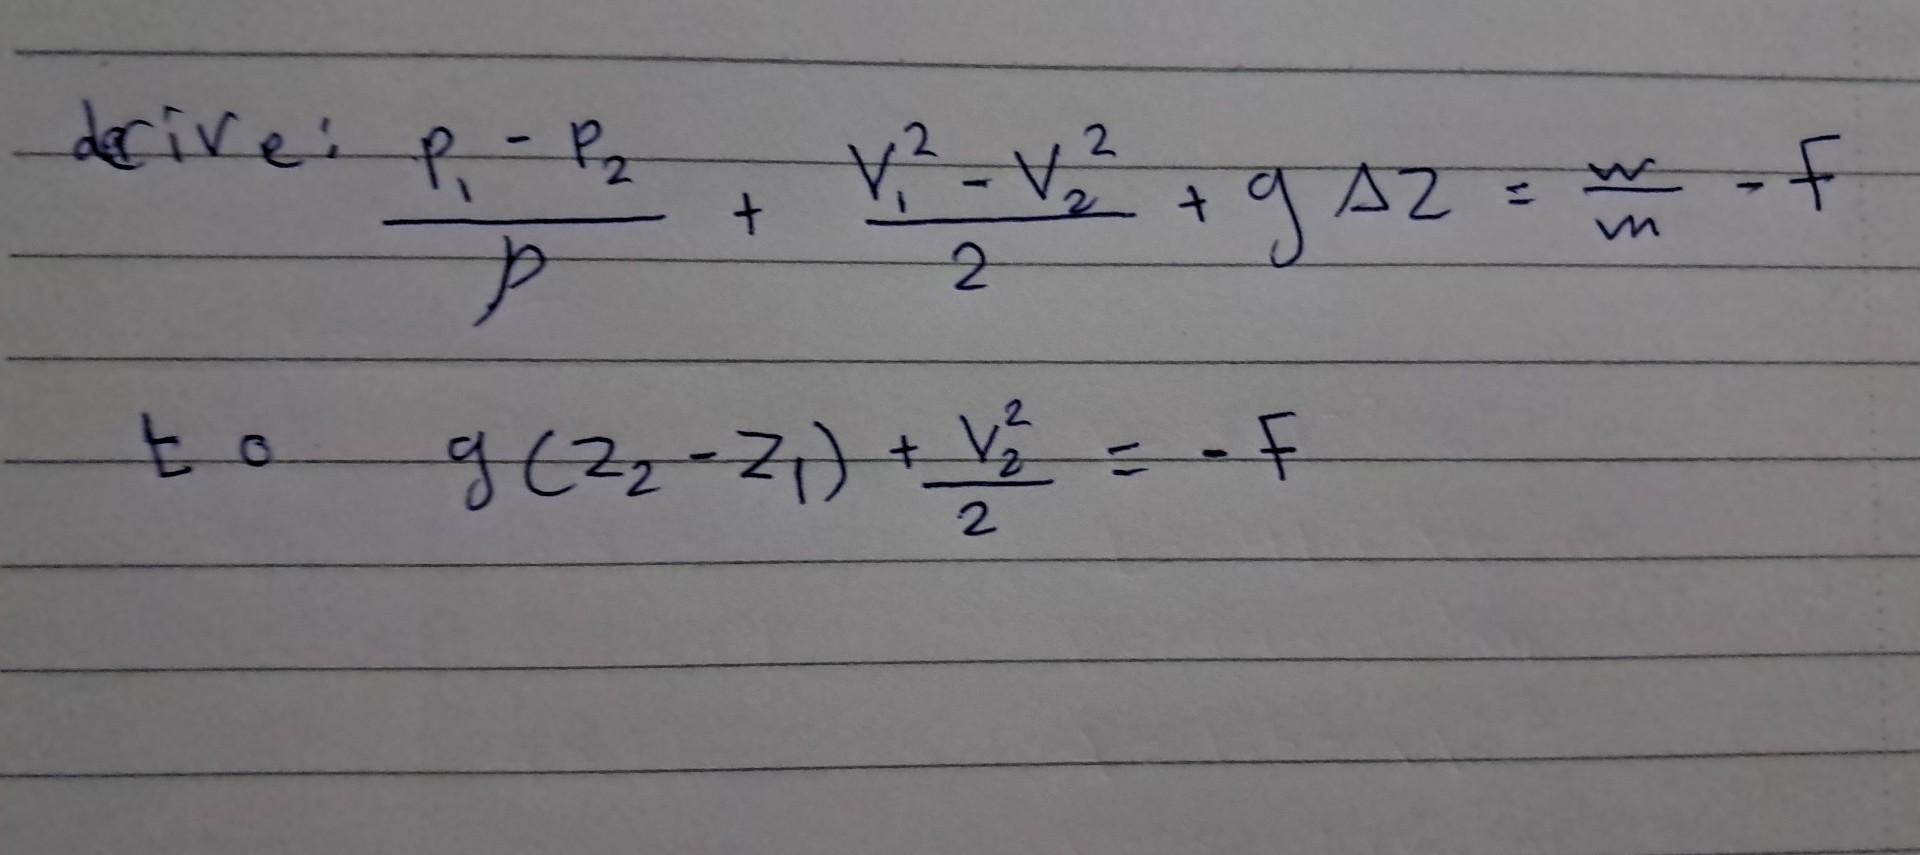 derive: P₁ - P₂ / ρ + V₁² - V₂² / 2 + g ΔZ = w / m - F
to g(Z₂ - Z₁) + V₂² / 2 = - F